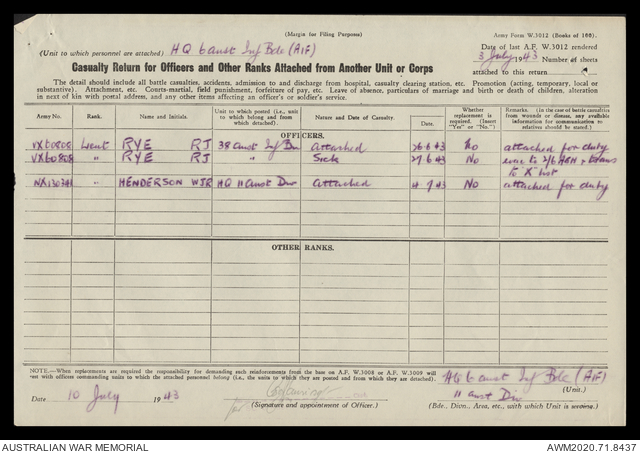 (Margin for Filing Purposes)
Army Form W.3012 (Books of 100).
HQ 6 aust Inf Bde (AIF)
(Unit to which personnel are attached)
Date of last A.F. W.3012 rendered
3 July 1943 Number of sheets
attached to this return
Casualty Return for Officers and Other Ranks Attached from Another Unit or Corps
The detail should include all battle casualties, accidents, admission to and discharge from hospital, casualty clearing station, etc. Promotion (acting, temporary, local or
substantive). Attachment, etc. Courts-martial, field punishment, forfeiture of pay, etc. Leave of absence, particulars of marriage and birth or death of children, alteration
in next of kin with postal address, and any other items affecting an officer's or soldier's service.
Army No. Rank. Name and Initials. Unit to which posted (i.e., unit to which they belong and from which detached). Nature and Date of Casualty. Date. Whether replacement is required. (Insert "Yes" or "No.") Remarks. (In the case of battle casualties from wounds or disease, any available information for communication to relatives should be stated.)
OFFICERS.
VX60808 Lieut RYE RJ 38 aust Inf Bn Attached 26 6 43 No attached for duty
VX60808 " RYE RJ " Sick 27 6 43 No evac to 2/6 AGH & trans
to "X" list
NX130341 " HENDERSON WJR HQ 11 aust Div attached 4 7 43 No attached for duty
OTHER RANKS.
NOTE.—When replacements are required the responsibility for demanding such reinforcements from the base on A.F. W.3008 or A.F. W.3009 will
rest with officers commanding units to which the attached personnel belong (i.e., the units to which they are posted and from which they are detached).
HQ 6 aust Inf Bde (AIF)
(Unit.)
Date 10 July 1943
for
11 aust Div
(Signature and appointment of Officer.)
(Bde., Divn., Area, etc., with which Unit is serving.)
AUSTRALIAN WAR MEMORIAL
AWM2020.71.8437